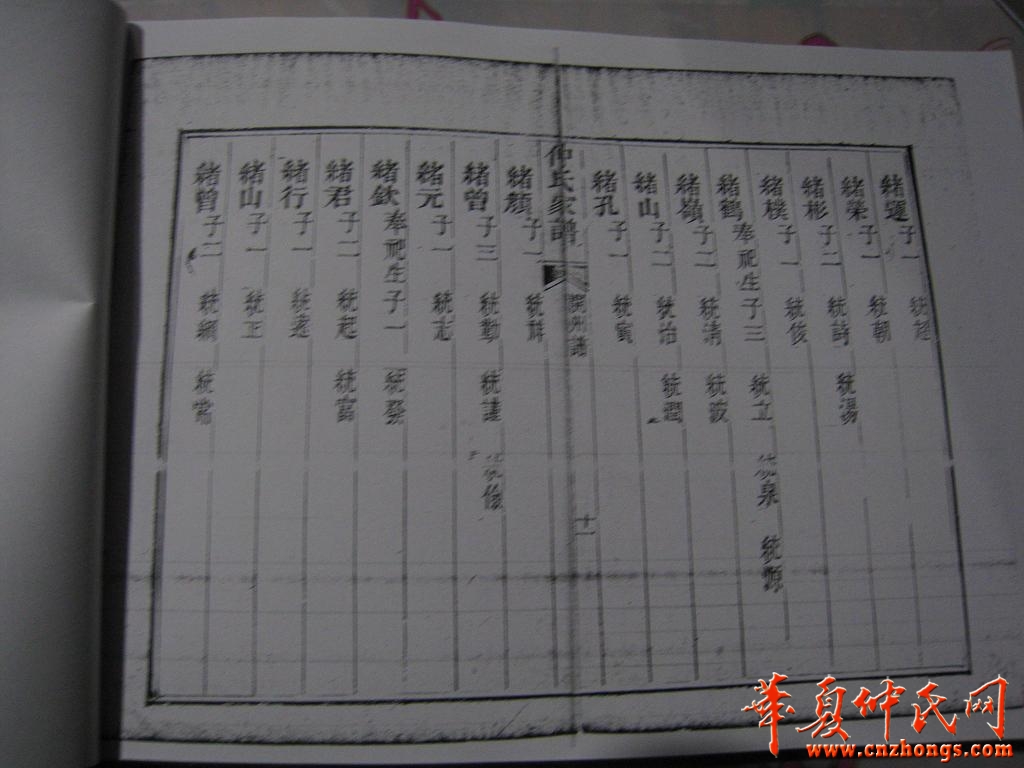 緒運 子一 統
緒榮 子一 統朝
緒彬 子二 統詩 統湯
緒樸 子一 統俊
緒鶴 奉祀生 子三 統立 統泉 統
緒嶺 子二 統清 統波
緒山 子二 統治 統潤
緒孔 子一 統賓
仲氏家譜 州譜 十一
緒顏 子一 統
緒曾 子三 統勳 統謹 統
緒元 子一 統志
緒欽 奉祀生 子一 統
緒君 子二 統起 統富
緒行 子一 統
緒山 子一 統正
緒曾 子二 統綱 統常
華夏仲氏网
www.cnzhongs.com